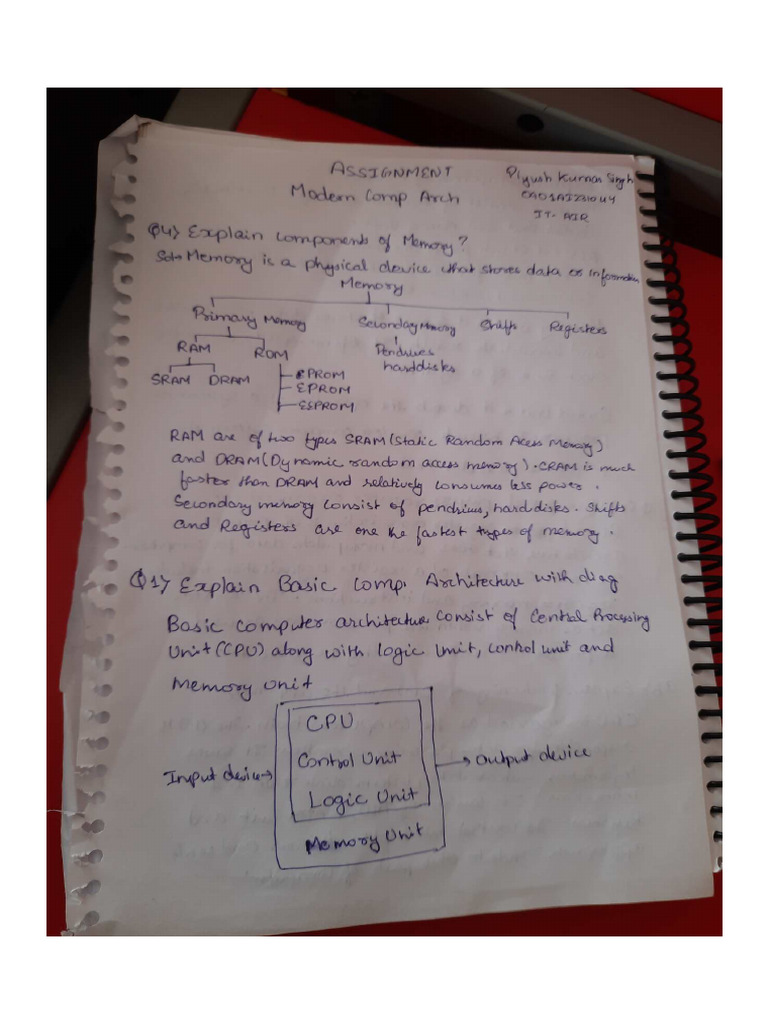 ASSIGNMENT
Modern Comp Arch
Piyush Kumar Singh
IT- AIR
Q4) Explain components of Memory?
Sol→ Memory is a physical device that stores data or information
Memory
Primary Memory Secondary Memory Shifts Registers
RAM ROM Pendrives
harddisks
SRAM DRAM
PROM
EPROM
EEPROM
RAM are of two types SRAM (Static Random Acess Memory)
and DRAM (Dynamic random access memory). SRAM is much
faster than DRAM and relatively consumes less power.
Secondary memory consist of pendrives, harddisks. Shifts
and Registers are one the fastest types of memory.
Q1) Explain Basic Comp. Architecture with diag
Basic computer architecture consist of Central Processing
Unit (CPU) along with Logic Unit, control unit and
Memory Unit
CPU
Control Unit
Logic Unit
Memory Unit
Input device→
→ output device